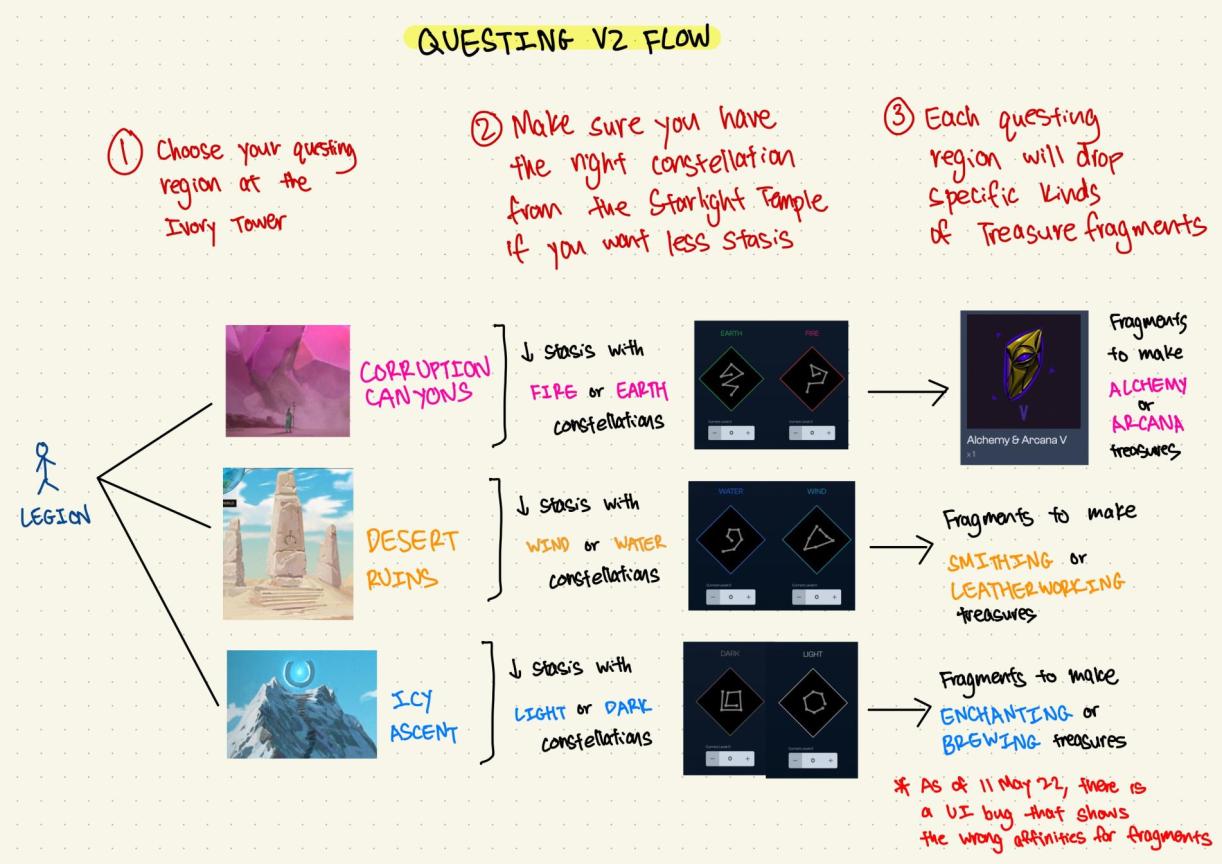 QUESTING V2 FLOW
① Choose your questing
region at the
Ivory Tower
② Make sure you have
the right constellation
from the Starlight Temple
if you want less stasis
③ Each questing
region will drop
specific kinds
of Treasure fragments
LEGION
CORRUPTION
CANYONS
↓ stasis with
FIRE or EARTH
constellations
EARTH
FIRE
- 0 +
- 0 +
V
Alchemy & Arcana V
x1
Fragments
to make
ALCHEMY
or
ARCANA
treasures
DESERT
RUINS
↓ stasis with
WIND or WATER
constellations
WATER
WIND
- 0 +
- 0 +
Fragments to make
SMITHING or
LEATHERWORKING
treasures
ICY
ASCENT
↓ stasis with
LIGHT or DARK
constellations
DARK
LIGHT
- 0 +
- 0 +
Fragments to make
ENCHANTING or
BREWING treasures
* As of 11 May 22, there is
a UI bug that shows
the wrong affinities for fragments